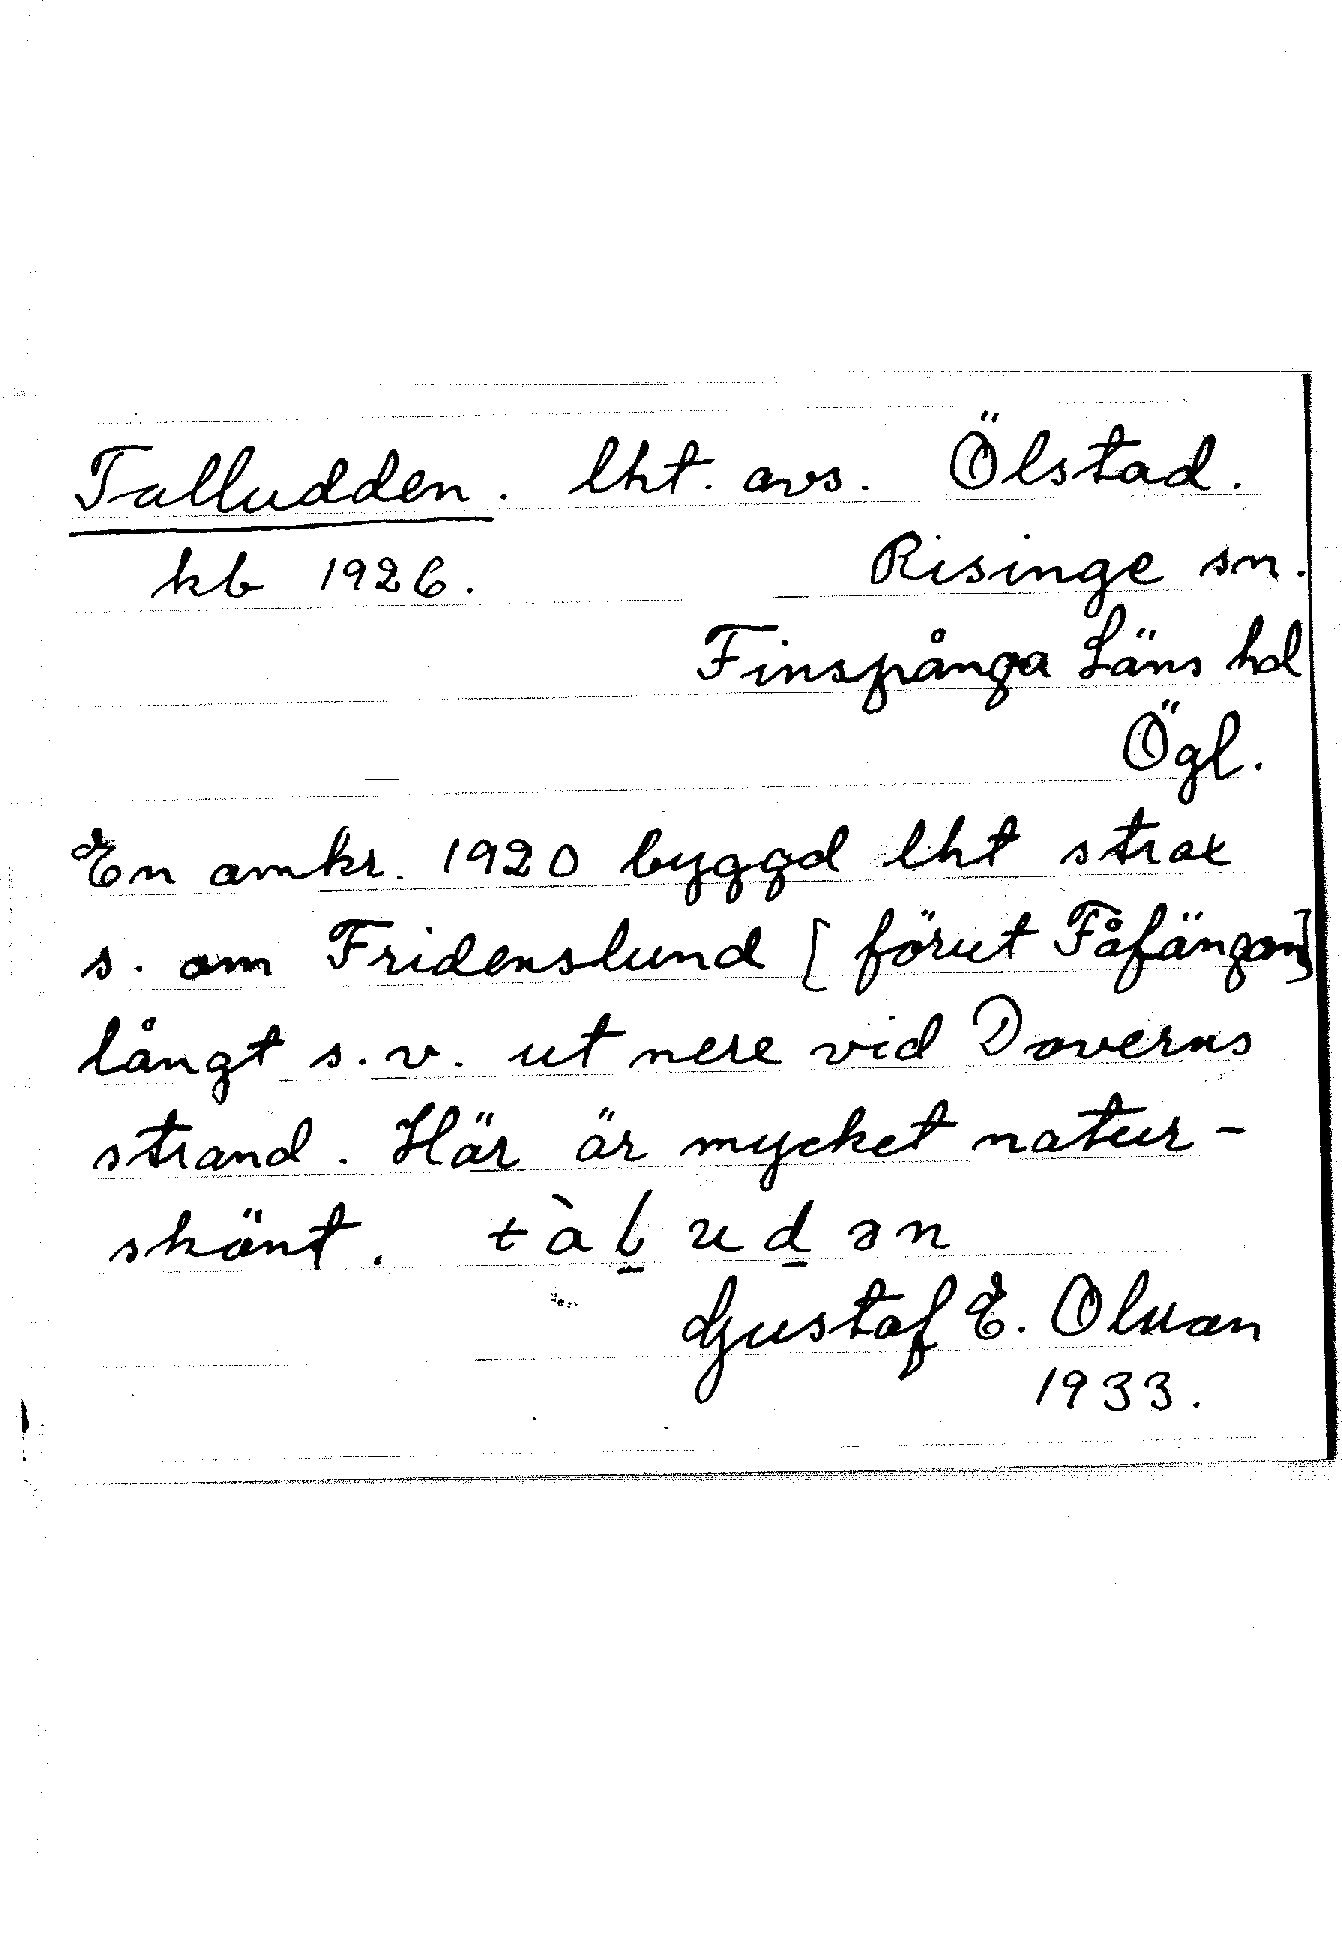 Talludden. lht. avs. Ölstad.
kb 1926. Risinge sn.
Finspånga Läns hd
Ögl.
En omkr. 1920 byggd lht strax
s. om Fridenslund [förut Fåfängan]
långt s.v. ut nere vid Doverns
strand. Här är mycket natur-
skönt. tàl̲ud̲ən
Gustaf E. Olson
1933.